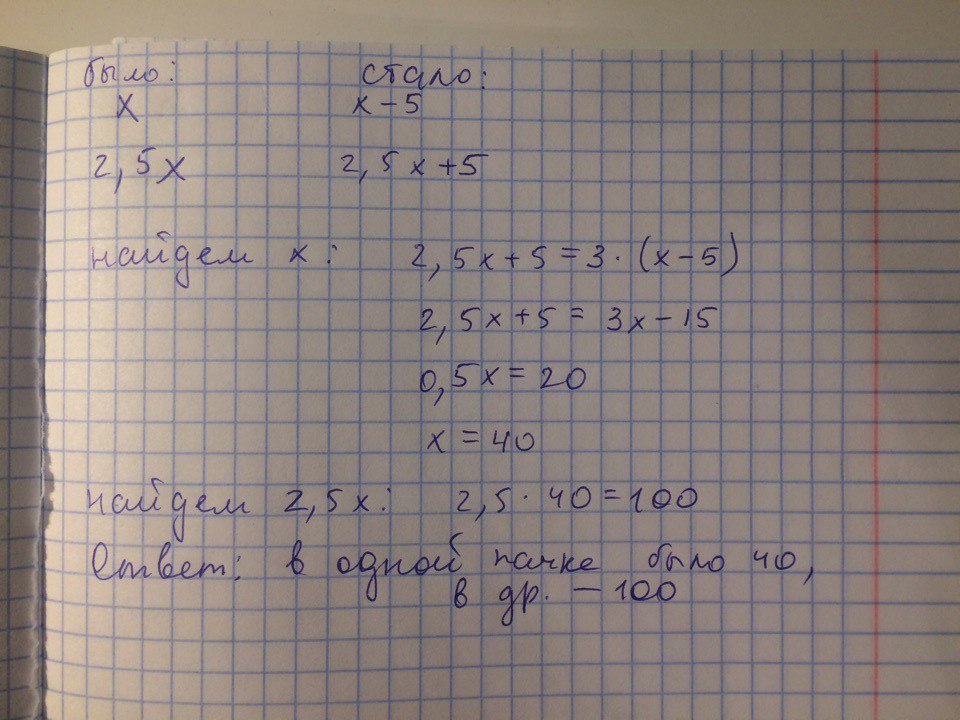 было: стало:
x x-5
2,5x 2,5x+5
найдем x: 2,5x+5=3·(x-5)
2,5x+5=3x-15
0,5x=20
x=40
найдем 2,5x: 2,5·40=100
Ответ: в одной пачке было 40,
в др. – 100